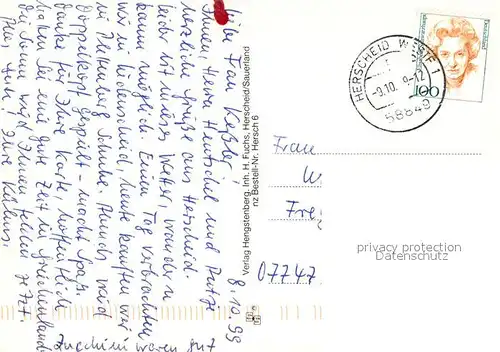 8.10.99
Liebe Frau Keßler!
Ihnen, Herrn Hentschel und Putzi
herzliche Grüße aus Herscheid.
Leider ist mieses Wetter, wandern
kaum möglich. Einen Tag verbrachten
wir in Lüdenscheid, heute kauften wir
in Plettenberg Schuhe. Abends wird
Doppelkopf gespielt - macht Spaß.
Danke für Ihre Karte, hoffentlich
haben Sie eine gute Zeit in Griechenland.
Die Sonne wird Ihnen fehlen jetzt.
Alles Gute! Ihre
Zucchini waren gut
Verlag Hengstenberg, Inh. H. Fuchs, Herscheid/Sauerland
nz Bestell-Nr. Hersch 6
HERSCHEID WESTF 1
-9.10. 9-12
58849
Deutschland
100
Frau
W
Fre
07747
privacy protection
Datenschutz